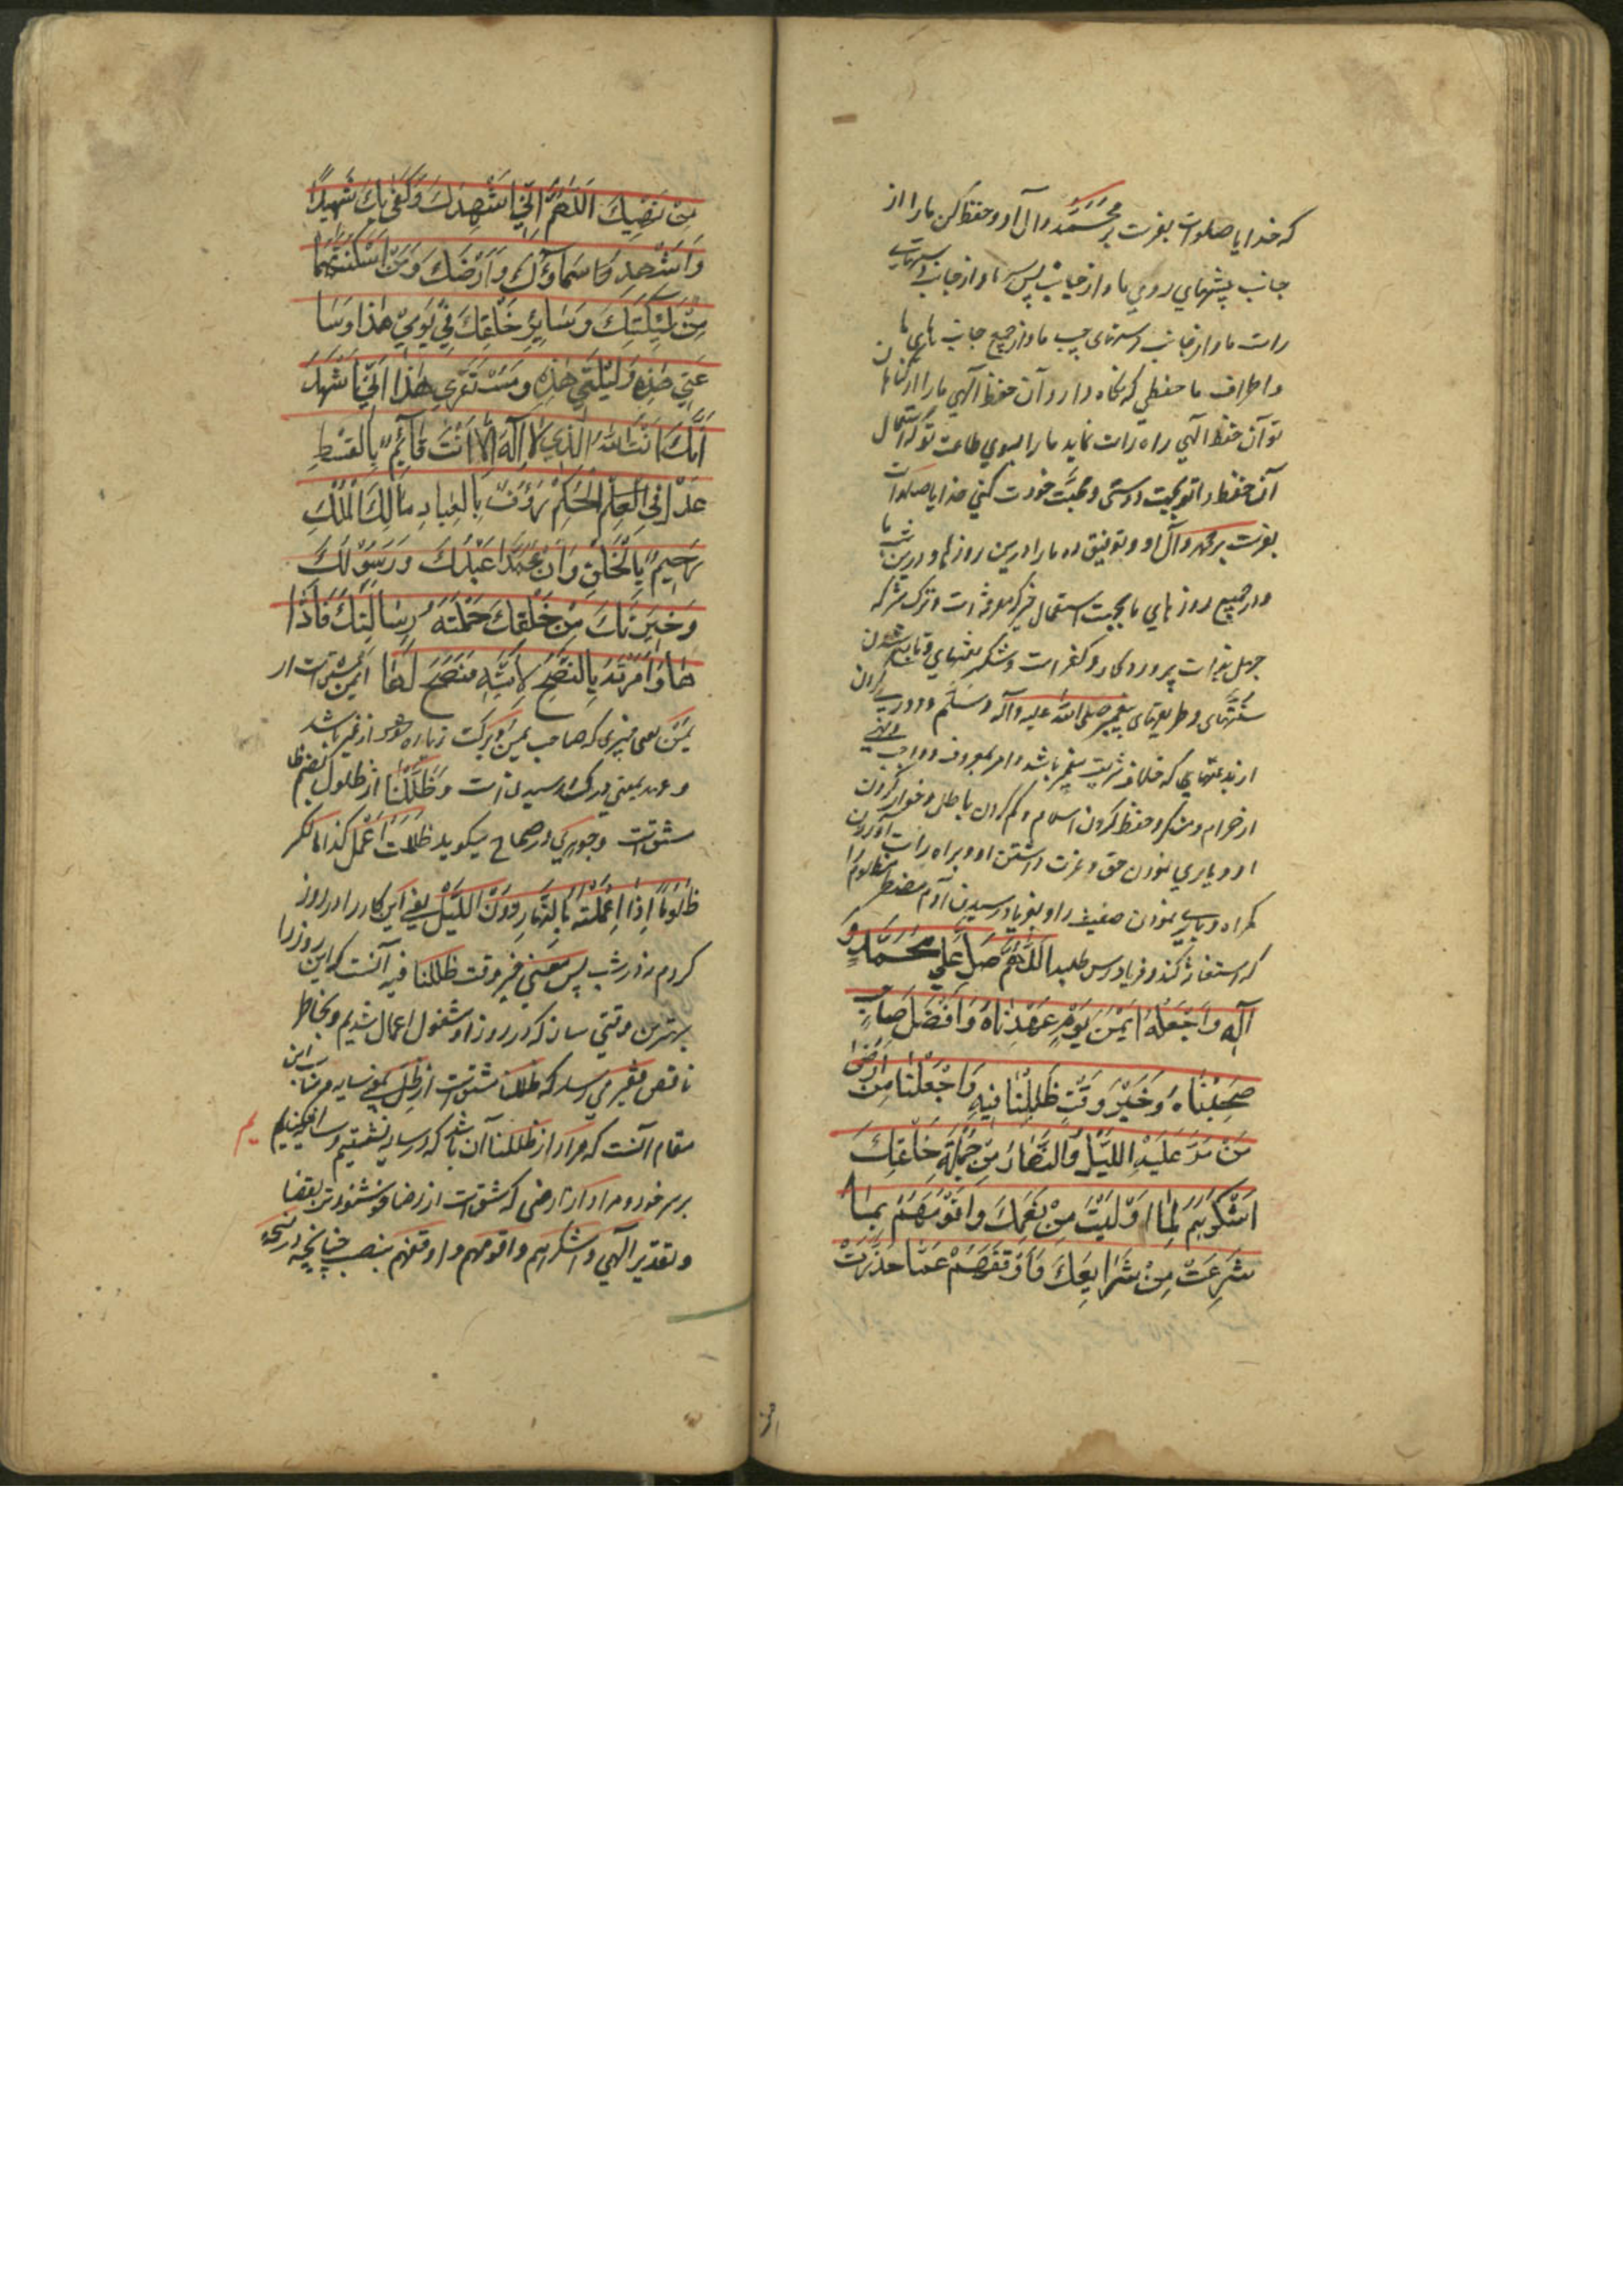 که خدایا صلوات بفرست بر محمد و آل او و حفظ کن ما را از
جانب پیشهای روی ما و از جانب پس سر ما و از جانب دستهای
راست ما و از جانب دستهای چپ ما و از جمیع جانب های ما
و اطراف ما حفظی که نگاه دارد آن حفظ آلهی ما را از گناهان
تو آن حفظ آلهی راه راست نماید ما را بسوی طاعت تو که استعمال
آن حفظ را تو بجهت دوستی و محبّت خودت کنی خدایا صلوات
بفرست بر محمد و آل او و توفیق ده ما را درین روز ما و درین شب ما
و در جمیع روز های ما بجهت استعمال خیر که معرفة است و ترک شر که
جهل بذات پروردکار و کفر است و شکر نعمتهای و تابع شدن
سُنّتهای و طریقهای پیغمبر صلی الله علیه و آله و سَلّم و دوری کردن
از بدعتهایی که خلاف شریعت پیغمبر باشد و امر بمعروف و واجب و نهی
از حرام و منکر و حفظ کردن اسلام و کم کردن باطل و خوار کردن
او و یاری نمودن حق و عزت داشتن او و براه راست آوردن
گمراه و یاری نمودن ضعیف را و بفریاد رسیدن آدم مضطر مظلوم را
که استغاثه کند و فریادرس طلبد اَللّٰهُمَّ صَلِّ عَلٰی مُحَمَّدٍ وَ
آلِهِ وَاجْعَلْهُ اَیْمَنَ یَوْمٍ عَهِدْنَاهُ وَاَفْضَلَ صَاحِبٍ
صَحِبْنَاهُ وَخَیْرَ وَقْتٍ ظَلِلْنَا فِیهِ وَاجْعَلْنَا مِنْ اَرْضٰی
مَنْ مَرَّ عَلَیْهِ اللَّیْلُ وَالنَّهَارُ مِنْ جُمْلَةِ خَلْقِكَ
اَشْکَرَهُمْ لِمَا اَوْلَیْتَ مِنْ نِعَمِكَ وَاَقْوَمَهُمْ بِمَا
شَرَعْتَ مِنْ شَرَایِعِكَ وَاَوْقَفَهُمْ عَمَّا حَذَّرْتَ
مِنْ نَهْیِكَ اَللّٰهُمَّ اِنِّی اُشْهِدُكَ وَکَفٰی بِكَ شَهِیدًا
وَاُشْهِدُ سَمَاءَكَ وَاَرْضَكَ وَمَنْ اَسْکَنْتَهُمَا
مِنْ مَلٰئِکَتِكَ وَسَایِرِ خَلْقِكَ فِی یَوْمِی هٰذَا وَسَا
عَتِی هٰذِهِ وَلَیْلَتِی هٰذِهِ وَمُسْتَقَرِّی هٰذَا اَنِّی اَشْهَدُ
اَنَّكَ اَنْتَ اللهُ الَّذِی لَا اِلٰهَ اِلَّا اَنْتَ قَائِمٌ بِالْقِسْطِ
عَدْلٌ فِی الْحُکْمِ رَؤُفٌ بِالْعِبَادِ مَالِكَ الْمُلْكِ
رَحِیمٌ بِالْخَلْقِ وَاَنَّ مُحَمَّدًا عَبْدُكَ وَرَسُولُكَ
وَخِیَرَتُكَ مِنْ خَلْقِكَ حَمَّلْتَهُ رِسَالَتَكَ فَاَدَّا
هَا وَاَمَرْتَهُ بِالنُّصْحِ لِاُمَّتِهِ فَنَصَحَ لَهَا ایمن مشتق است از
یُمْن یعنی چیزی که صاحب یمن و برکت زیاده از غیر باشد
و عهد بمعنی درک و رسیدن است و ظَلَلْنَا از ظلول بضم ظا
مشتق است و جوهری در صحاح میکوید ظَلَلْتُ اَعْمَلُ کذا بالکسر
ظُلُولًا اِذَا عَمِلْتَهُ بِالنَّهَارِ دُونَ اللَّیْلِ یعنی این کار را در روز
کردم نه در شب پس معنی خیر وقت ظللنا فیه آنست که این روز را
بهترین وقتی ساز که در روز او مشغول اعمال شدیم و بخاطر
ناقص فقیر می رسد که ظللنا مشتق است از ظِلّ یعنی سایه و مناسب این
مقام آنست که مراد از ظللنا آن باشد که در سایه نشستیم و سایه افکندیم
بر سر خود و مراد از ارضی که مشتق است از رضا خوشنودتر بقضا
و تقدیر آلهی و اشکرهم و اقومهم و اوقفهم بنصب چنانچه در نسخه